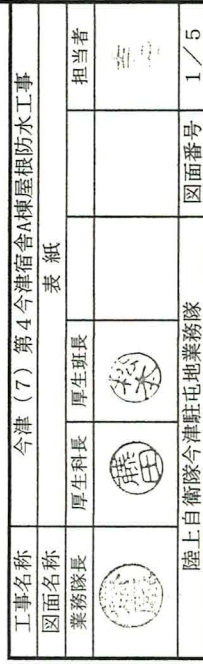 工事名称 今津（7）第4今津宿舎A棟屋根防水工事
図面名称 表紙
業務隊長 厚生科長 厚生班長 担当者
藤田
陸上自衛隊今津駐屯地業務隊 図面番号 1／5